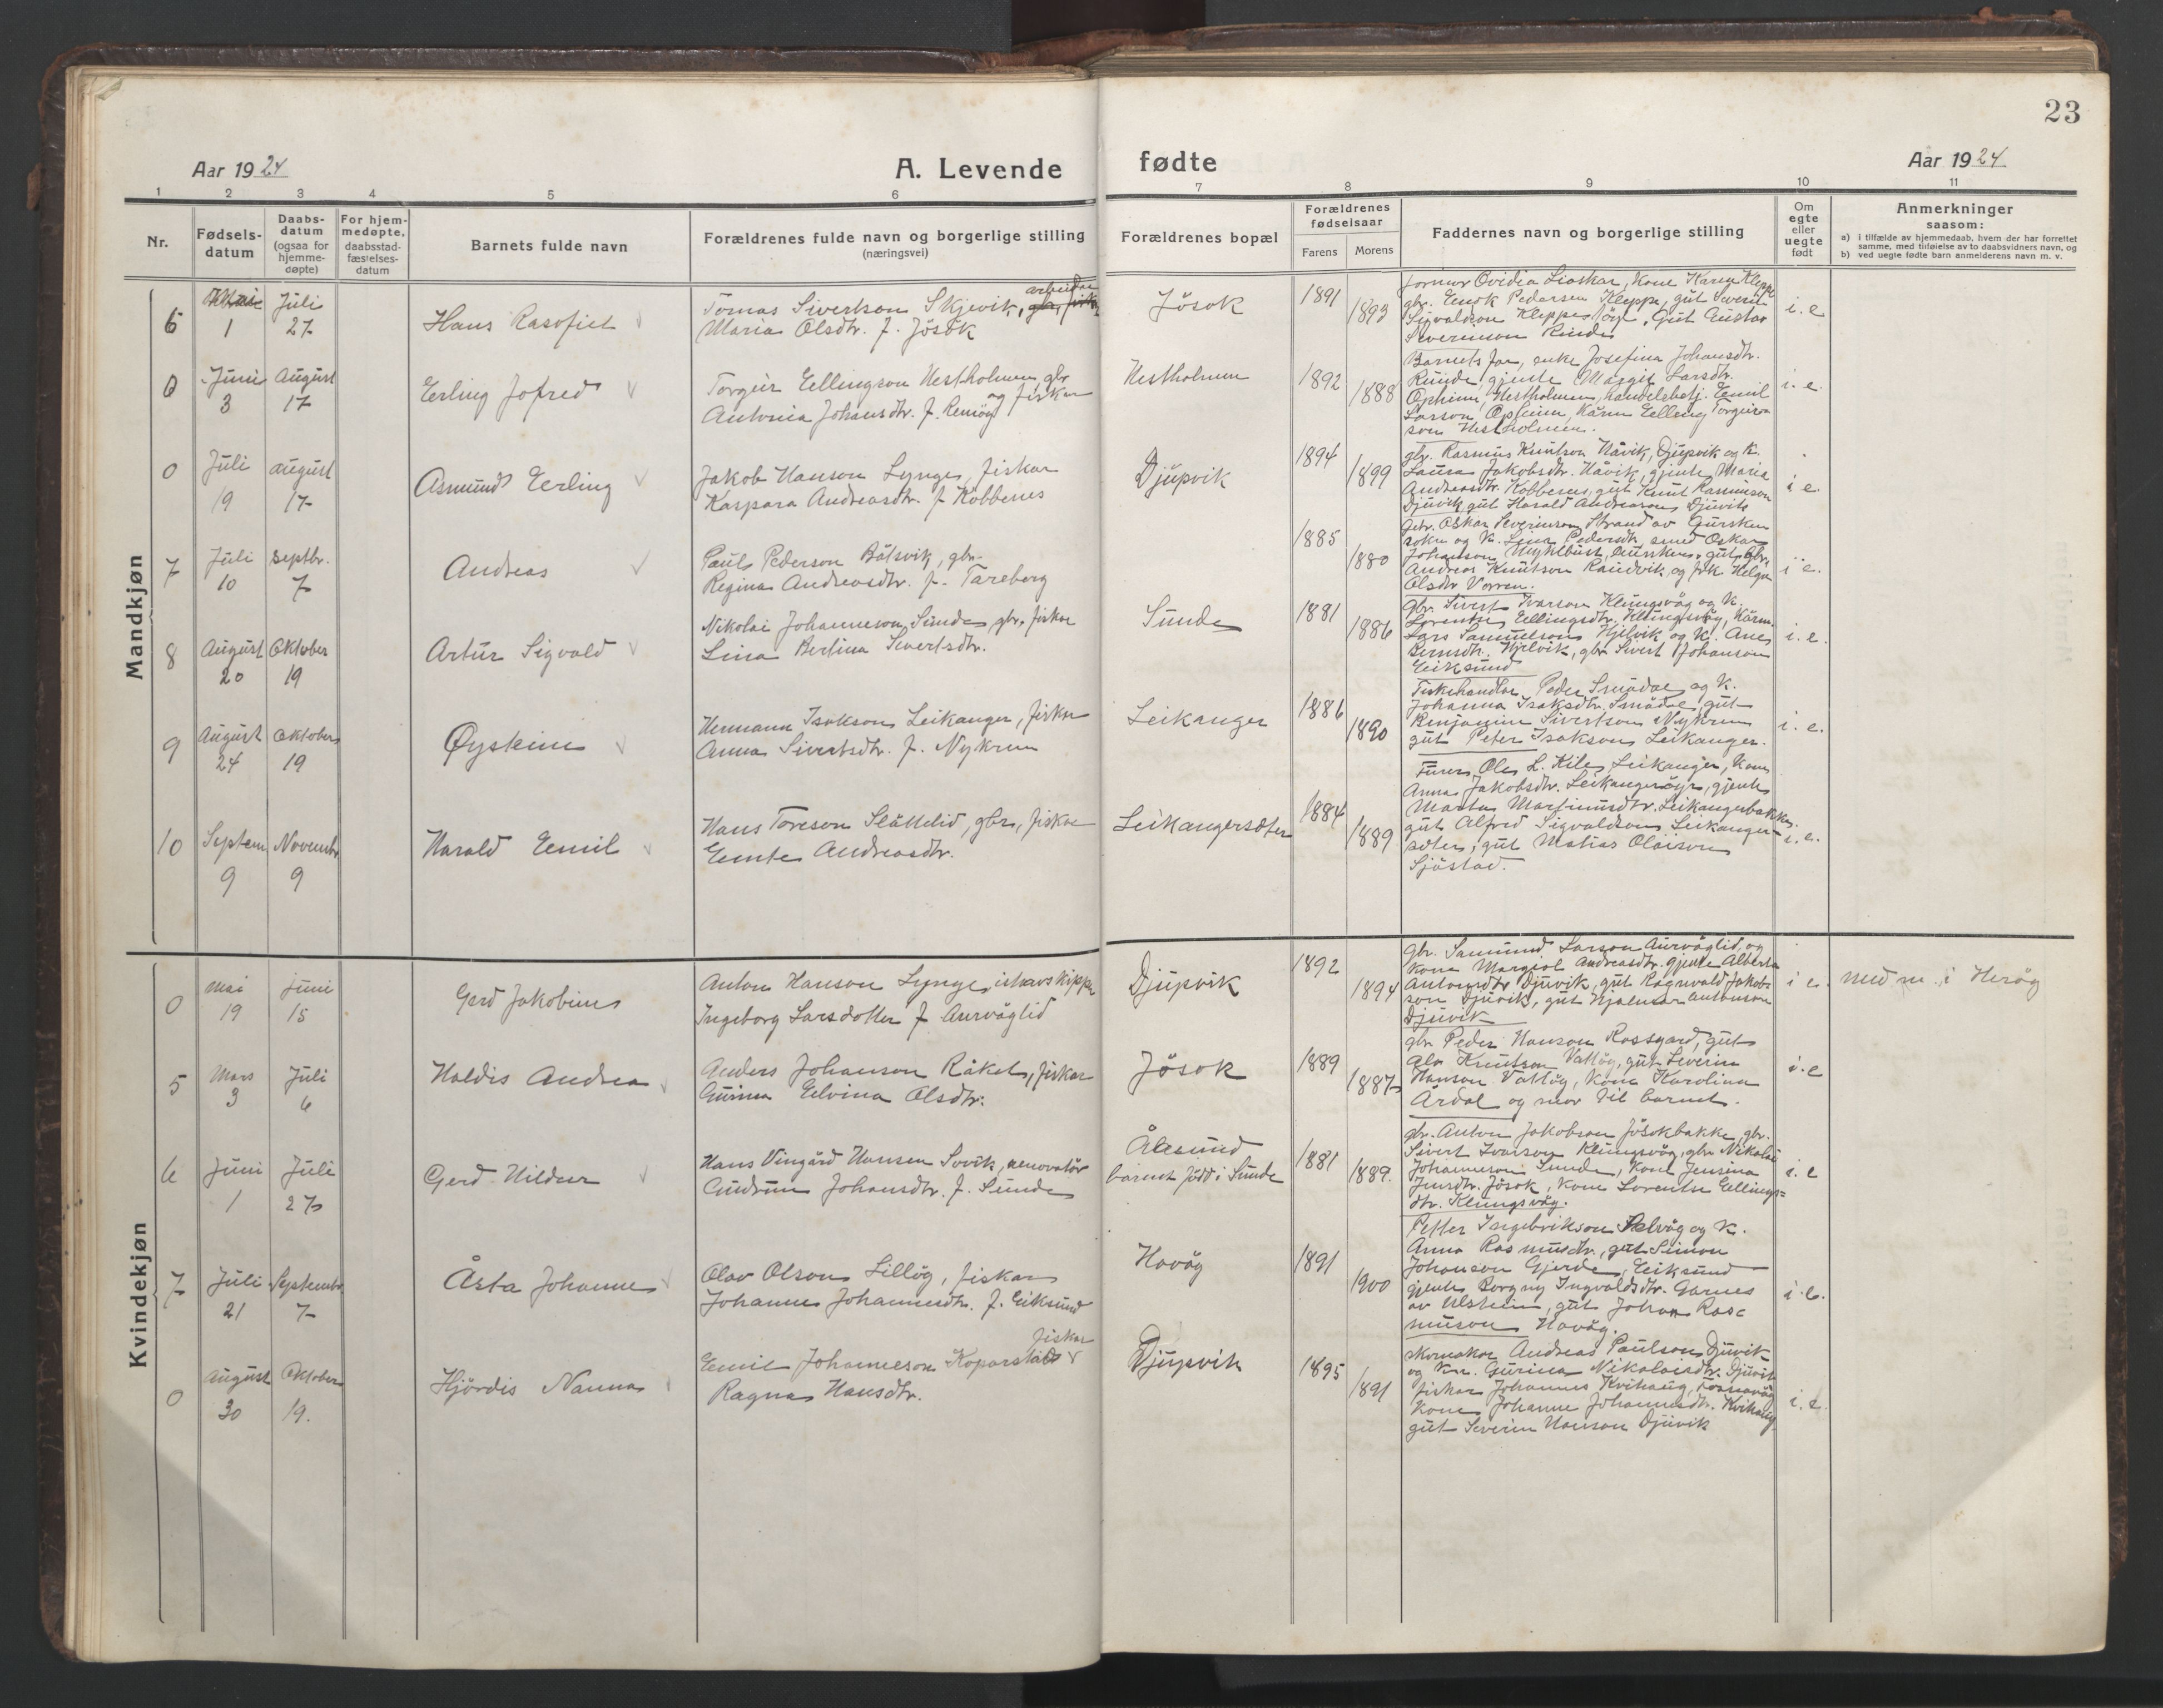 23
Aar 1924
A. Levende
fødte
Aar 1924
1 2 3 4 5 6 7 8 9 10 11
Nr.
Fødsels-
datum
Daabs-
datum
(ogsaa for
hjemme-
døpte)
For hjem-
medøpte,
daabsstad-
fæstelses-
datum
Barnets fulde navn
Forældrenes fulde navn og borgerlige stilling
(næringsvei)
Forældrenes bopæl
Forældrenes
fødselsaar
Farens Morens
Faddernes navn og borgerlige stilling
Om
egte
eller
uegte
født
Anmerkninger
saasom:
a) i tilfælde av hjemmedaab, hvem der har forrettet
samme, med tilføielse av to daabsvidners navn, og
b) ved uegte fødte barn anmelderens navn m. v.
Mandkjøn
1
Juli
27
Hans
Tomas Sivertson Skjevik, arbeidar
Maria Olsdtr. f. Jøsok
Jøsok
1891
1893
jormor Ovidia Lioskar, kone Karen Kleppe
gbr. Enok Pedersen Kleppe, gut Severin
Sigvaldson Kleppe, gut Gustav
Severinson Runde
i. e
Juni
3
August
17
Erling Jofred
Torgeir Eellingson Hestholmen, gbr
og fiskar
Antonia Johansdtr. f. Remøy
Hestholmen
1892
1888
Barnets far, enke Josefina Johansdtr.
Runde, gjente Margit Larsdtr.
Opheim, Hestholmen, handelsbetj. Eemil
Larson Opheim, Eelling Torgeirson
Hestholmen.
i. e.
0
Juli
19
August
17
Asmund Eerling
Jakob Hanson Lynge, fiskar
Kaspara Andreasdtr. f. Kobbenes
Djupvik
1894
1899
gbr. Rasmus Knutson Håvik, Djupvik og K.
Laura Jakobsdtr. Håvik, gjente Maria
Andreasdtr. Kobbenes, gut Knut Rasmusson
Djuvik gut Harald Andreason Djuvik
i e.
7
Juli
10
Septbr.
7
Andreas
Paul Pederson Båtsvik, gbr.
Regina Andreasdtr. f. Tareberg
1885
1880
Gbr. Oskar Severinson Strand av Gursken
sokn og K. Lina Pedersdtr, smed Oskar
Johanson Myklbust, Gursken, gut gbr.
Andreas Knutson Raudvik, og frk Helga
Olsdtr Vorren.
i e.
8
August
20
Oktober
19
Artur Sigvald
Nikolai Johanneson Sunde gbr, fiskar
Lina Bertina Sivertsdtr.
Sunde
1881
1886
gbr. Sivert Ivarson Klungsvåg og K.
Lorentse Eellingsdtr. Klungsvåg,
Lars Samuelson Hjelvik og K. Ane
Berntsdtr. Hjelvik, gbr Sivert Johanson
Eeiksund
i. e.
9
August
24
Oktober
19
Øystein
Hermann Isakson Leikanger, fiskar
Anna Sivertsdtr. f. Nykrem
Leikanger
1886
1890
Fiskehandlar Peder Smådal og K.
Johanna Isaksdtr. Smådal, gut
Benjamin Sivertson Nykrem
gut Peter Isakson Leikanger.
i. e.
10
Septem
9
Novembr
9
Harald Eemil
Hans Toreson Slåttelid, gbr, fiskar
Eemte Andreasdtr.
Leikangersæter
1884
1889
Ole L. Kile Leikanger, Kone
Anna Jakobsdtr. Leikangersøyr, gjente
Marta Martinusdtr. Leikangerbakke,
gut Alfred Sigvaldson Leikanger-
sæter, gut Matias Olaison
Sjåstad.
i. e.
Kvindekjøn
0
Mai
19
Juni
15
Gerd Jakobine
Anton Hanson Lynge, ishavsskipper
Ingeborg Larsdotter f Aurvåglid
Djupvik
1892
1894
gbr. Samund Larson Aurvåglid, og
kona Margiol Andreasdtr. gjente Alberta
Antonsdtr Djuvik, gut Ragnvald Jakob-
son Djuvik, gut Hjalmar Antonson
Djuvik
i e.
medm. i Herøy
5
Mars
3
Juli
6
Haldis Andrea
Anders Johanson Råket, fiskar
Gurina Eelvina Olsdtr.
Jøsok
1889
1887
gbr Peder Hanson Rossgard, gut
Ola Knutson Vattøy, gut Severin
Hanson Vattøy, Kone Karolina
Årdal og mor til barnet.
i. e
6
Juni
1
Juli
27
Gerd Hildur
Hans Vingård Hansen Sovik, renovatør
Gudrun Johansdtr. f. Sunde
Ålesund
barnet född i Sunde
1881
1889.
gbr. Anton Jakobson Jøsokbakke, gbr.
Sivert Ivarson Klungsvåg, gbr Nikolai
Johanneson Sunde, kone Jensina
Jensdtr. Jøsok, kone Lorentse Eellings-
dtr. Klungsvåg.
i. e
7
Juli
21
Septembr
7
Åsta Johanne
Olav Olson Lilløy, fiskar
Johanne Johannesdtr. f. Eeiksund
Havåg
1891
1900
Petter Ingebrikson Selvåg og K.
Anna Rasmusdtr., gut Simon
Johanson Gjerde, Eeiksund
gjente Borgny Ingvaldsdtr. Garnes
av Ulstein, gut Johan Ras-
muson Havåg.
i. e.
0
August
30
Oktober
19.
Hjördis Nanna
fiskar
Eemil Johanneson Koparstad
Ragna Hansdtr.
Djupvik
1895
1891
skomakar Andreas Paulson Djuvik
og kn. Gurina Nikolaisdtr. Djuvik
fiskar Johannes Kvihaug,
kone Johanne Johannesdtr. Kvihaug
gut Severin Hanson Djuvik
i. e.